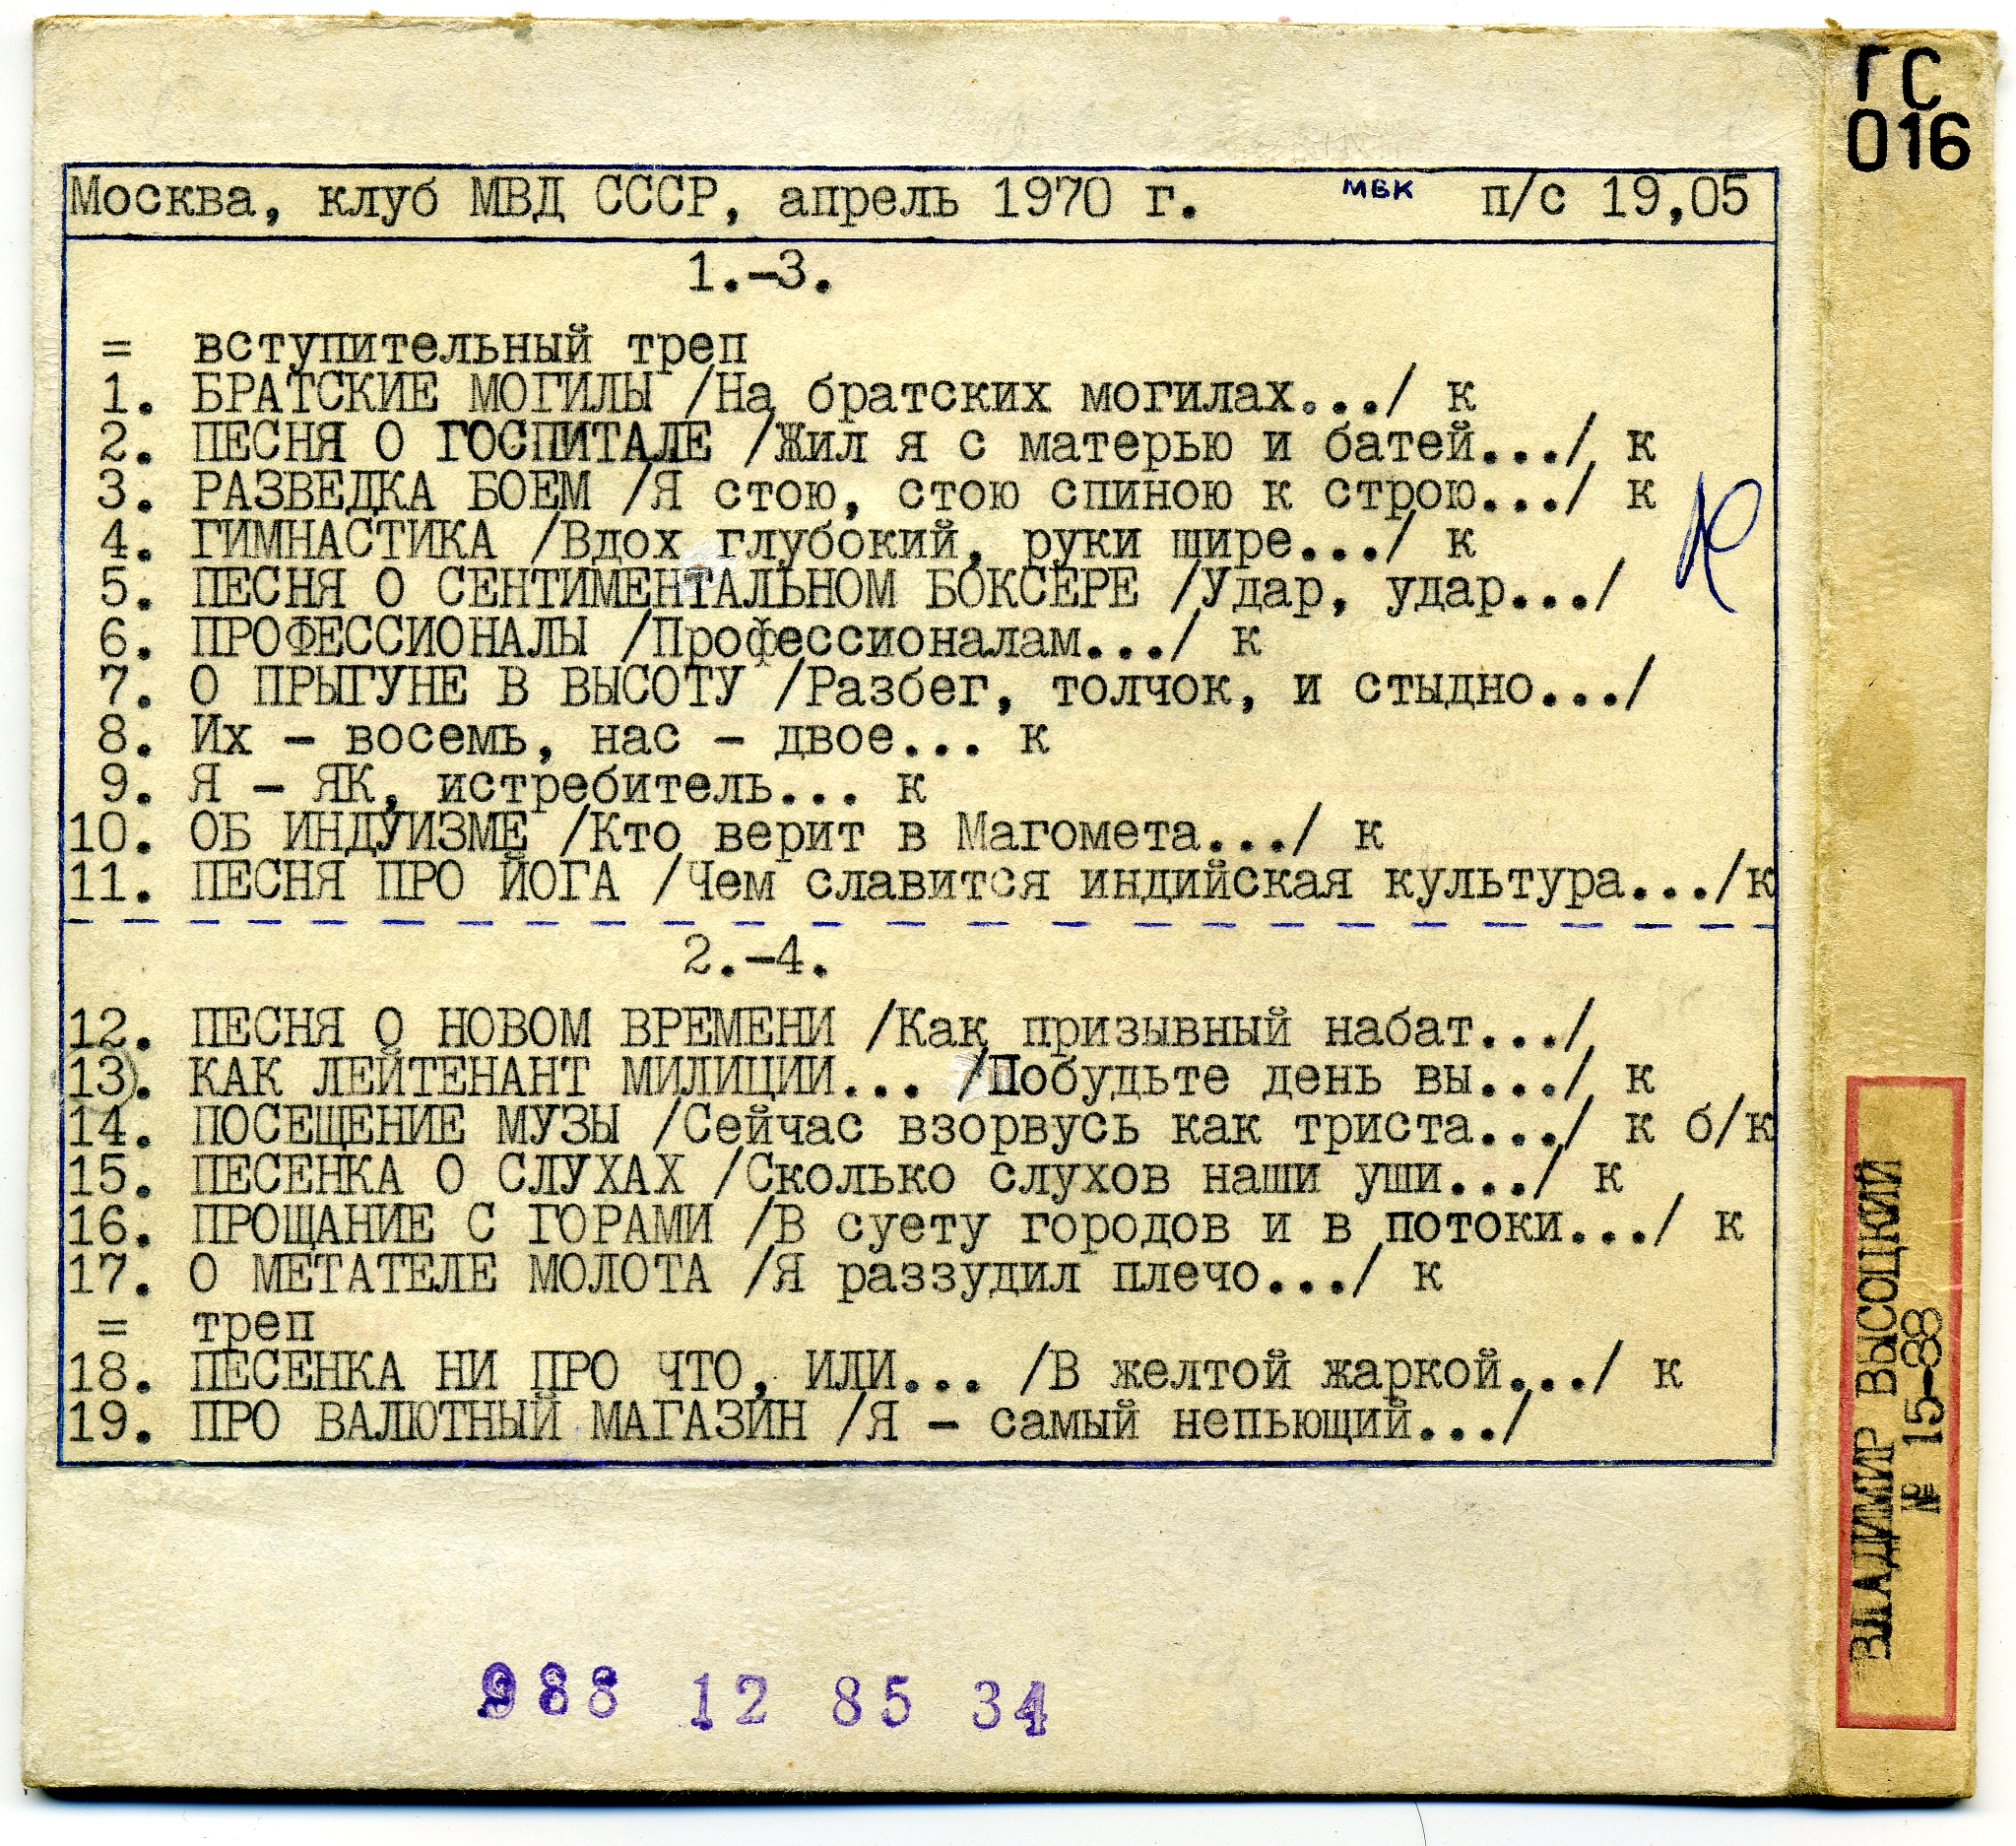 ГС
016
Москва, клуб МВД СССР, апрель 1970 г. МБК п/с 19,05
1.-3.
= вступительный треп
1. БРАТСКИЕ МОГИЛЫ /На братских могилах.../ к
2. ПЕСНЯ О ГОСПИТАЛЕ /Жил я с матерью и батей.../ к
3. РАЗВЕДКА БОЕМ /Я стою, стою спиною к строю.../ к
4. ГИМНАСТИКА /Вдох глубокий, руки шире.../ к
5. ПЕСНЯ О СЕНТИМЕНТАЛЬНОМ БОКСЕРЕ /Удар, удар.../
6. ПРОФЕССИОНАЛЫ /Профессионалам.../ к
7. О ПРЫГУНЕ В ВЫСОТУ /Разбег, толчок, и стыдно.../
8. Их - восемь, нас - двое... к
9. Я - ЯК, истребитель... к
10. ОБ ИНДУИЗМЕ /Кто верит в Магомета.../ к
11. ПЕСНЯ ПРО ЙОГА /Чем славится индийская культура.../к
2.-4.
12. ПЕСНЯ О НОВОМ ВРЕМЕНИ /Как призывный набат.../
13. КАК ЛЕЙТЕНАНТ МИЛИЦИИ... /Побудьте день вы.../ к
14. ПОСЕЩЕНИЕ МУЗЫ /Сейчас взорвусь как триста.../ к б/к
15. ПЕСЕНКА О СЛУХАХ /Сколько слухов наши уши.../ к
16. ПРОЩАНИЕ С ГОРАМИ /В суету городов и в потоки.../ к
17. О МЕТАТЕЛЕ МОЛОТА /Я раззудил плечо.../ к
= треп
18. ПЕСЕНКА НИ ПРО ЧТО, ИЛИ... /В желтой жаркой.../ к
19. ПРО ВАЛЮТНЫЙ МАГАЗИН /Я - самый непьющий.../
988 12 85 34
ВЛАДИМИР ВЫСОЦКИЙ
№ 15-88